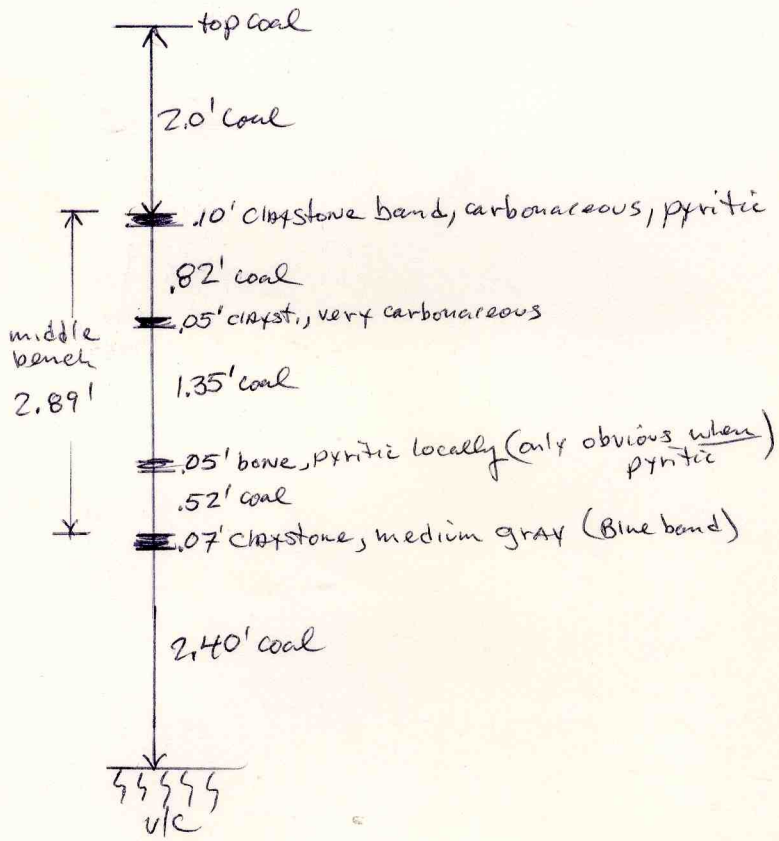 top coal
2.0' coal
.10' claystone band, carbonaceous, pyritic
.82' coal
.05' clayst., very carbonaceous
middle
bench
2.89'
1.35' coal
.05' bone, pyritic locally (only obvious when
pyritic)
.52' coal
.07' claystone, medium gray (Blue band)
2.40' coal
u/c